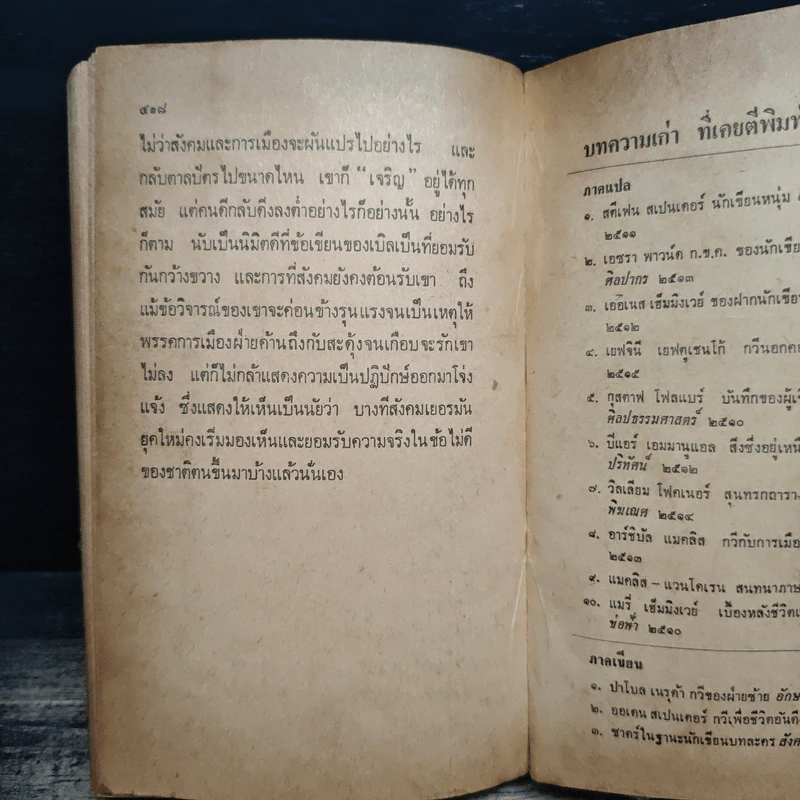 ๔๑๘
ไม่ว่าสังคมและการเมืองจะผันแปรไปอย่างไร และ
กลับตาลปัตรไปขนาดไหน เขาก็ “เจริญ” อยู่ได้ทุก
สมัย แต่คนดีกลับดิ่งลงต่ำอย่างไรก็อย่างนั้น อย่างไร
ก็ตาม นับเป็นนิมิตดีที่ข้อเขียนของเบิลเป็นที่ยอมรับ
กันกว้างขวาง และการที่สังคมยังคงต้อนรับเขา ถึง
แม้ข้อวิจารณ์ของเขาจะค่อนข้างรุนแรงจนเป็นเหตุให้
พรรคการเมืองฝ่ายค้านถึงกับสะดุ้งจนเกือบจะรักเขา
ไม่ลง แต่ก็ไม่กล้าแสดงความเป็นปฏิปักษ์ออกมาโจ่ง
แจ้ง ซึ่งแสดงให้เห็นเป็นนัยว่า บางทีสังคมเยอรมัน
ยุคใหม่คงเริ่มมองเห็นและยอมรับความจริงในข้อไม่ดี
ของชาติตนขึ้นมาบ้างแล้วนั่นเอง
บทความเก่า ที่เคยตีพิมพ์
ภาคแปล
๑. สตีเฟน สเปนเดอร์ นักเขียนหนุ่ม
๒๕๑๑
๒. เอซรา พาวน์ด ก.ข.ค. ของนักเขีย
ศิลปากร ๒๕๑๓
๓. เออิเนส เฮ็มมิงเวย์ ของฝากนักเขีย
๒๕๑๒
๔. เยฟจินี เยฟตูเชนโก้ กวีนอกคอ
๒๕๑๕
๕. กุสตาฟ โฟลแบร์ บันทึกของผู้
ศิลปธรรมศาสตร์ ๒๕๑๐
๖. บีแอร์ เอมมานูแอล สิ่งซึ่งอยู่เหนื
ปริทัศน์ ๒๕๑๒
๗. วิลเลียม โฟคเนอร์ สุนทรกถาราง
พิฆเณศ ๒๕๑๔
๘. อาร์ชิบัล แมคลิส กวีกับการเมือ
๒๕๑๓
๙. แมคลิส – แวนโดเรน สนทนาภาษ
๑๐. แมรี่ เฮ็มมิงเวย์ เบื้องหลังชีวิต
ช่อฟ้า ๒๕๑๐
ภาคเขียน
๑. ปาโบล เนรูด้า กวีของฝ่ายซ้าย อักษ
๒. ออเดน สเปนเดอร์ กวีเพื่อชีวิตอันดี
๓. ซาตร์ในฐานะนักเขียนบทละคร สังค